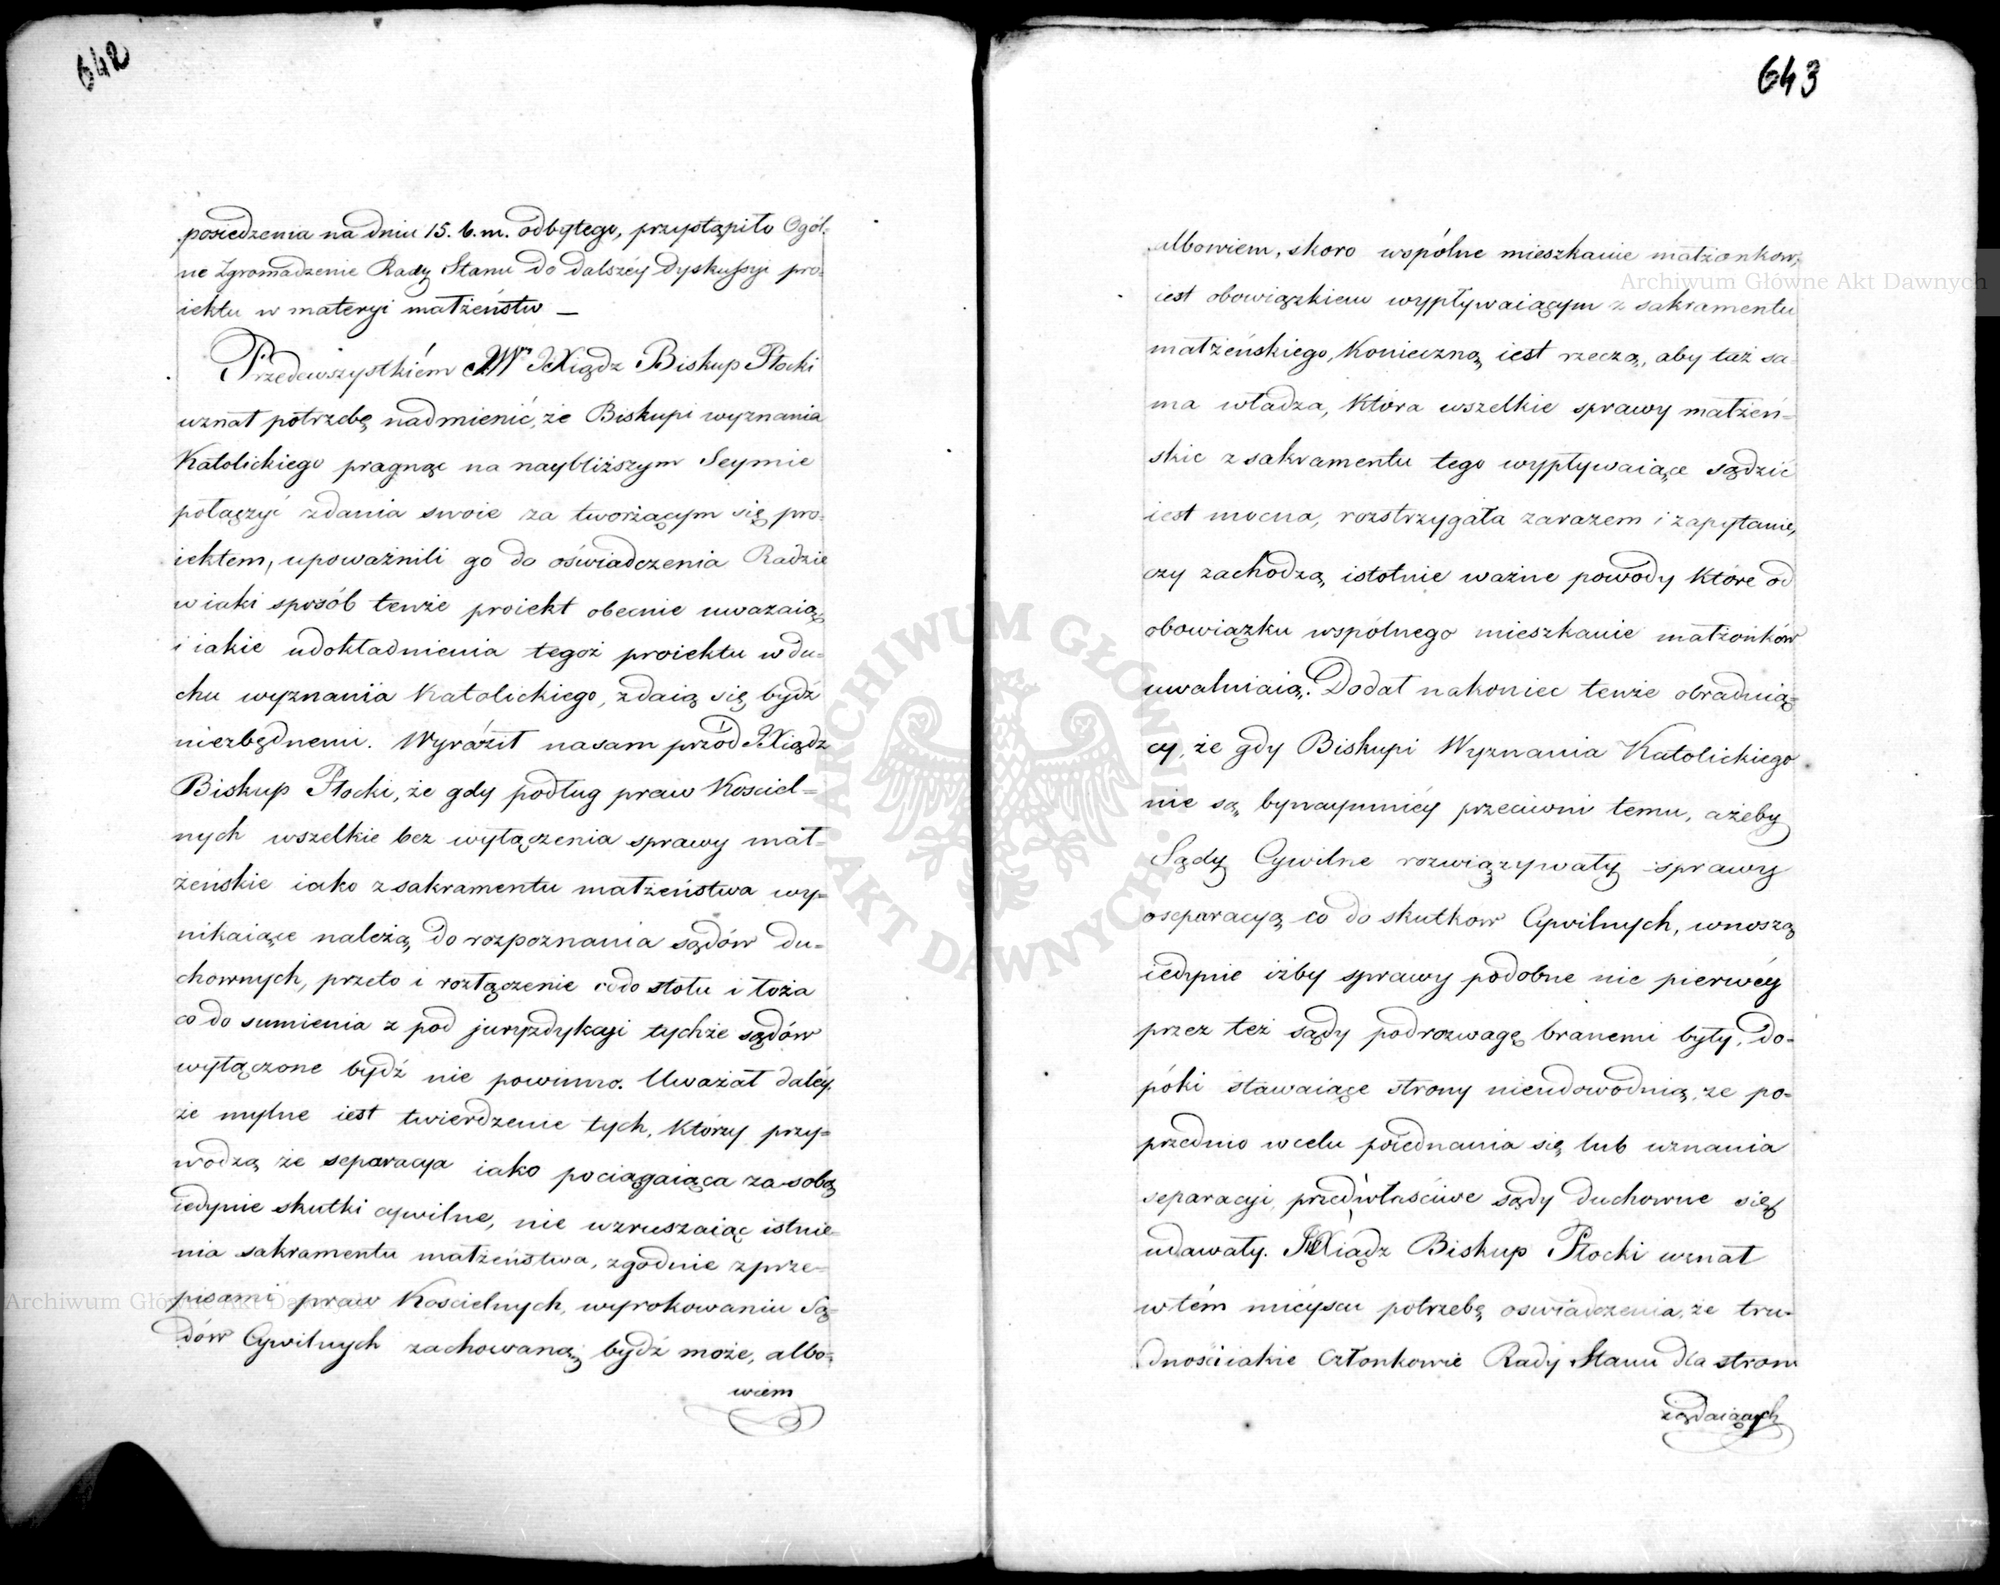 642
posiedzenia na dniu 15. b. m. odbytego, przystąpiło Ogól-
ne Zgromadzenie Rady Stanu do dalszéy dyskussyi pro-
iektu w materyi małżeństw —
Przedewszystkiém JW. JXiądz Biskup Płocki
uznał potrzebę nadmienić, że Biskupi wyznania
Katolickiego pragnąc na naybliższym Seymie
połączyć zdania swoie za tworzącym się pro-
iektem, upoważnili go do oświadczenia Radzie
w iaki sposób tenże proiekt obecnie uważaią,
i iakie udokładnienia tegoż proiektu w du-
chu wyznania Katolickiego, zdaią się bydź
niezbędnemi. Wyraźił nasam przód JXiądz
Biskup Płocki, że gdy podług praw Kosciel=
nych wszelkie bez wyłączenia sprawy mał-
żeńskie iako z sakramentu małżeństwa wy-
nikaiące należą do rozpoznania sądów du-
chownych, przeto i rozłączenie co do stołu i łoża
co do sumienia z pod juryzdykcyi tychże sądów
wyłączone bydź nie powinno. Uważał daléy,
że mylne iest twierdzenie tych, którzy przy-
wodzą że separacya iako pociągaiąca za sobą
iedynie skutki cywilne, nie wzruszaiąc istnie-
nia sakramentu małżeństwa, zgodnie z prze-
pisami praw Kościelnych, wyrokowaniu Są-
dów Cywilnych zachowaną bydź może, albo-
wiem
643
Albowiem, skoro wspólne mieszkanie małżonków,
iest obowiązkiem wypływaiącym z sakramentu
małżeńskiego, Konieczną iest rzeczą, aby taż sa-
ma władza, która wszelkie sprawy małżeń-
skie z sakramentu tego wypływaiące sądzić
iest mocna, rozstrzygała zarazem i zapytanie,
czy zachodzą istotnie ważne powody które od
obowiązku wspólnego mieszkanie małżonków
uwalniaią. Dodał nakoniec tenże obraduią-
cy, że gdy Biskupi Wyznania Katolickiego
nie są bynaymniéy przeciwni temu, ażeby
Sądy Cywilne rozwiązywały sprawy
o separacyą co do skutków Cywilnych, wnoszą
iedynie iżby sprawy podobne nie pierwéy
przez też sądy pod rozwagę branemi były, do-
póki stawaiące strony nieudowodnią, że po-
przednio w celu poiednania się lub uznania
separacyi, przed właściwe sądy duchowne się
udawały. JXiądz Biskup Płocki uznał
w tém mieyscu potrzebę oświadczenia, że tru-
dności iakie Członkowie Rady Stanu dla stron
żądaiących
Archiwum Główne Akt Dawnych
Archiwum Główne Akt Dawnych
ARCHIWUM GŁÓWNE AKT DAWNYCH